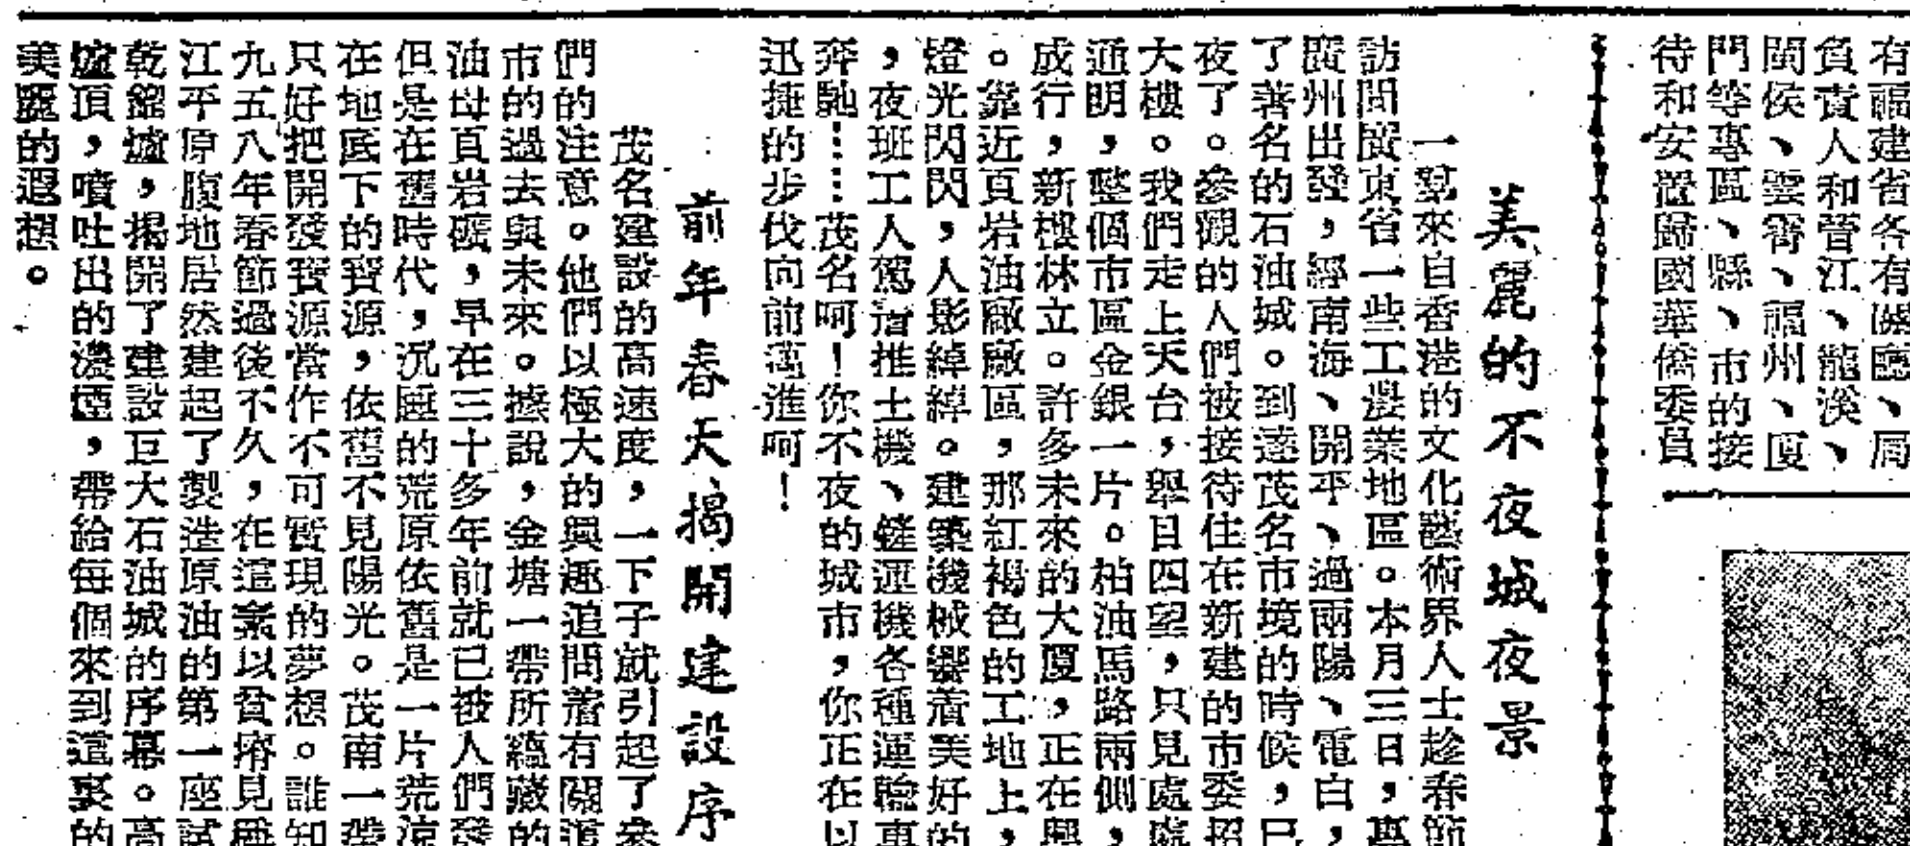 有福建省各有關廳、局
負責人和晉江、龍溪、
閩侯、雲霄、福州、厦
門等專區、縣、市的接
待和安置歸國華僑委員
美麗的不夜城夜景
一羣來自香港的文化藝術界人士趁春節
訪問廣東省一些工農業地區。本月三日，專
廣州出發，經南海、開平、過兩陽、電白，
了著名的石油城。到達茂名市境的時候，已
夜了。參觀的人們被接待住在新建的市委招
大樓。我們走上天台，舉目四望，只見處處
通明，整個市區金銀一片。柏油馬路兩側，
成行，新樓林立。許多未來的大厦，正在興
。靠近頁岩油廠廠區，那紅褐色的工地上，
燈光閃閃，人影綽綽。建築機械響着美好的
，夜班工人駕着推土機、鏟運機各種運輸車
奔馳……茂名呵！你不夜的城市，你正在以
迅捷的步伐向前邁進呵！
前年春天揭開建設序
茂名建設的高速度，一下子就引起了參
們的注意。他們以極大的興趣追問着有關這
市的過去與未來。據說，金塘一帶所蘊藏的
油母頁岩礦，早在三十多年前就已被人們發
但是在舊時代，沉睡的荒原依舊是一片荒涼
在地底下的寶源，依舊不見陽光。茂南一帶
只好把開發寶源當作不可實現的夢想。誰知
九五八年春節過後不久，在這素以貧瘠見稱
江平原腹地居然建起了製造原油的第一座試
乾餾爐，揭開了建設巨大石油城的序幕。高
爐頂，噴吐出的濃煙，帶給每個來到這裏的
美麗的遐想。